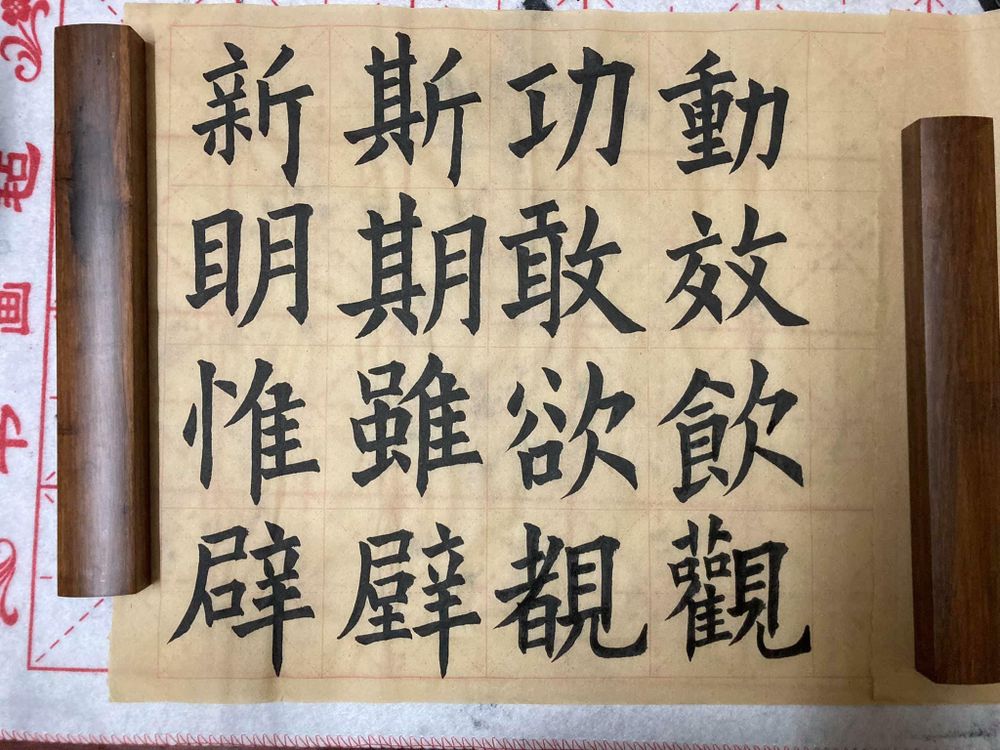 新斯功動
眀期敢效
惟雖欲飲
辟壁覩觀